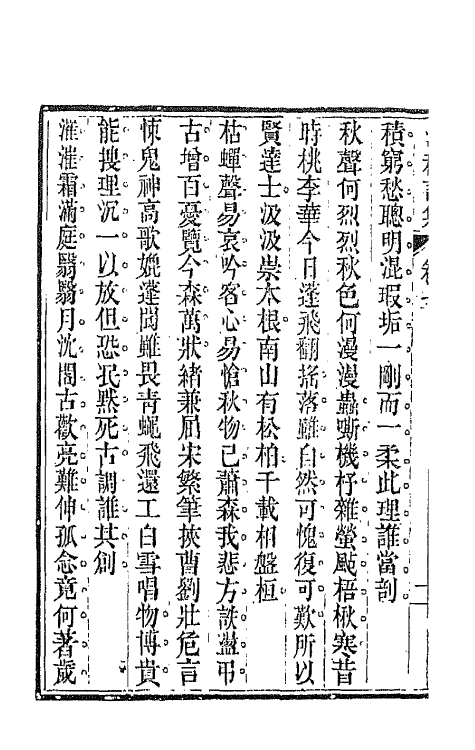 積窮愁聰明混瑕垢一剛而一柔此理誰當剖
秋聲何烈烈秋色何漫漫蟲嘶機杼雜螢颭梧楸寒昔
時桃李華今日蓬飛翻搖落雖自然可愧復可歎所以
賢達士汲汲崇本根南山有松柏千載相盤桓
枯蟬聲易哀吟客心易愴秋物已蕭森我悲方訣盪弔
古增百憂覽今森萬狀緒兼屈宋繁筆挾曹劉壯危言
悚鬼神高歌媲蓬閬雖畏青蠅飛還工白雪唱物博貴
能搜理沉一以放但恐泯黙死古調誰共創
漼漼霜滿庭翳翳月沈閤古歡亮難伸孤念竟何著歲